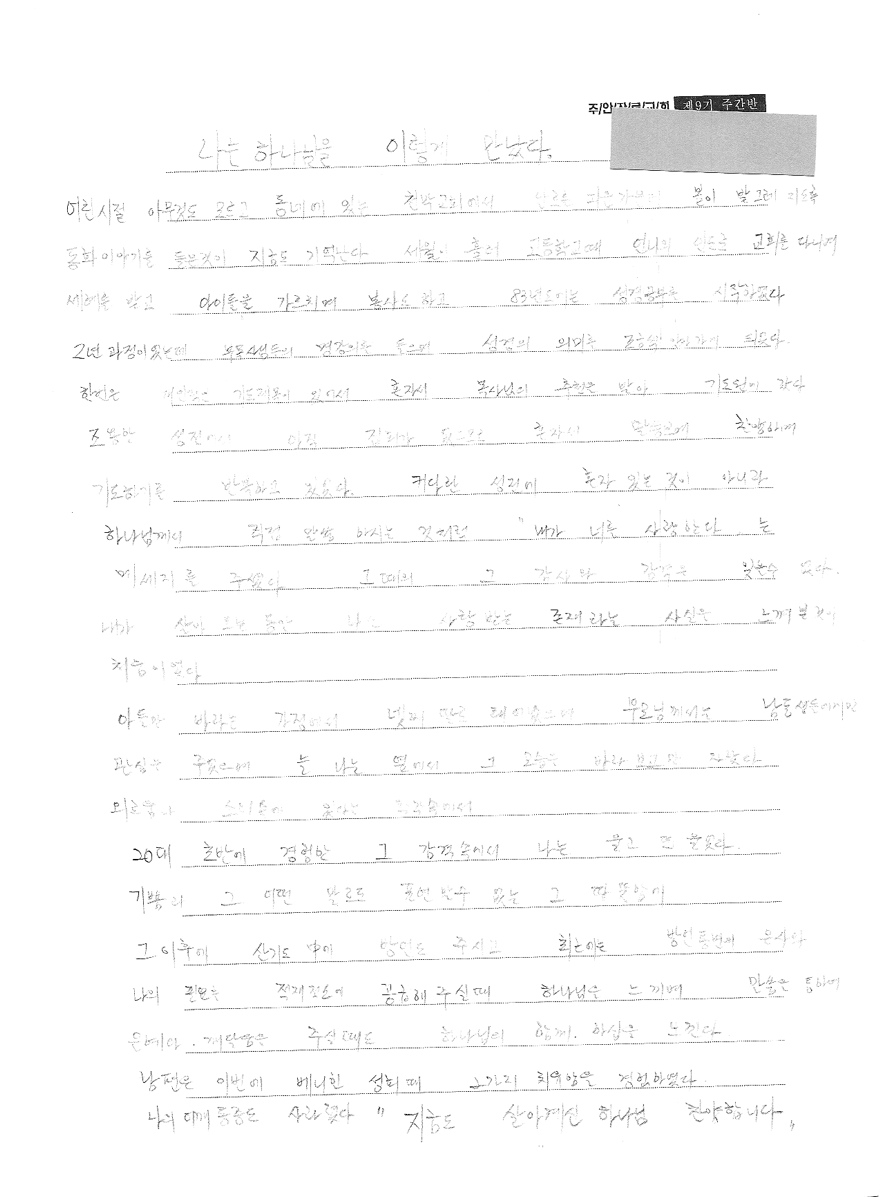 주/안/장/로/교/회 제9기 주간반
나는 하나님을 이렇게 만났다.
어린시절 아무것도 모르고 동네에 있는 볼이 발그레 지도록
동화이야기를 들은것이 지금도 기억난다 세월이 흘러 고등학교때 언니의 인도로 교회를 다니게
세례를 받고 아이들을 가르치며 봉사도 하고 83년도에는 성경공부를 시작하였다
2년 과정이었는데 들으며 성경의 의미를 조금씩 알아가게 되었다.
한번은 기도제목이 있어서 혼자서 목사님의 추천을 받아 기도원에 갔다
조용한 성전에서 아직 집회가 없으므로 혼자서 찬양하며
기도하기를 반복하고 있었다. 커다란 성전에 혼자 있는 것이 아니라
하나님께서 직접 말씀 하시는 것처럼 "내가 너를 사랑한다 는
메세지를 주셨다 그때의 그 감사와 감격은 잊을수 없다.
내가 살아 오는 동안 나도 사랑 받는 존재라는 사실을 느껴 본 것이
처음이었다
아들만 바라는 가정에서 넷째 딸로 태어났으며 부모님께서는 남동생들에게만
관심을 주셨으며 늘 나는 옆에서 그 모습을 바라 보고만 자랐다
외로움과
20대 초반에 경험한 그 감격속에서 나는 울고 또 울었다.
기쁨의 그 어떤 말로도 표현 할수 없는 그 따뜻함이
그 이후에 산기도 中에 방언도 주시고 최근에는 방언통변의 은사와
나의 필요를 적재적소에 공급해 주실때 하나님을 느끼며 만물을 통하여
은혜와 깨달음을 주실때도 하나님이 함께. 하심을 느낀다
남편은 이번에 베니힌 성회때 2가지 치유함을 경험하였다.
나의 어깨 통증도 사라졌다 " 지금도 살아계신 하나님 찬양합니다 "